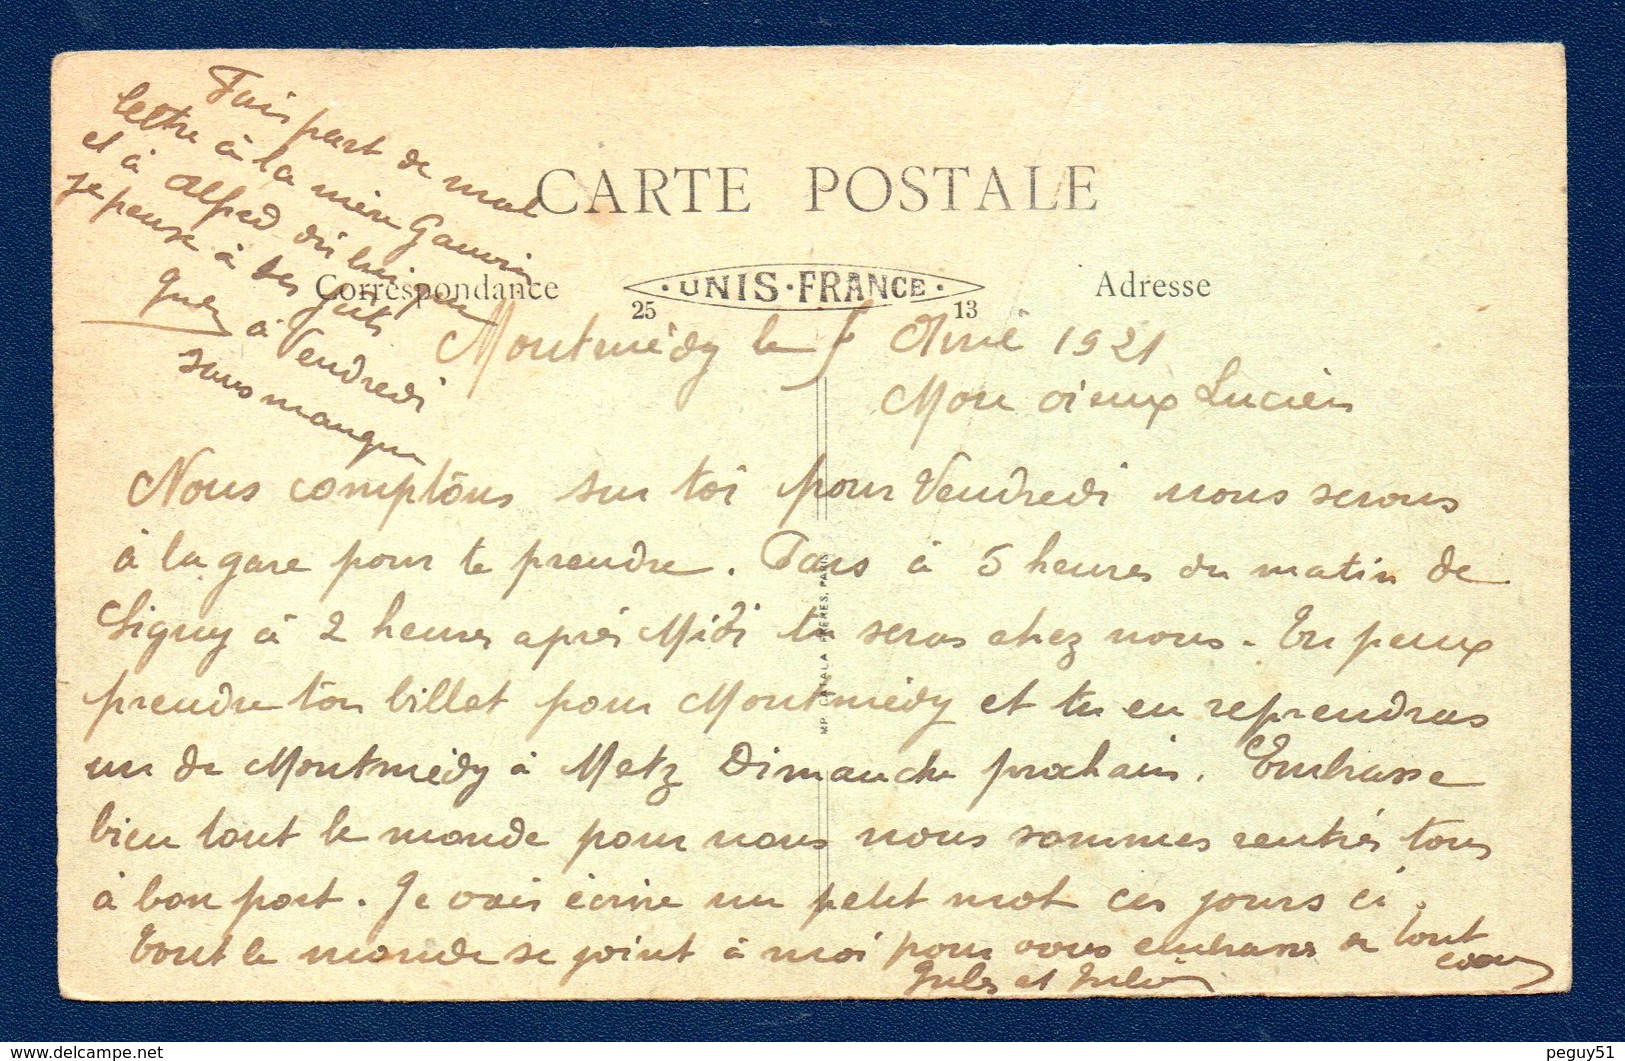 Fais part de ma
lettre à la mère Gauvin
et à Alfred dis lui que
je pense à ses
à Vendredi
sans manquer
CARTE POSTALE
Correspondance
UNIS-FRANCE
25 13
Adresse
Montmédy le 5 1921
Mon vieux Lucien
Nous comptons sur toi pour Vendredi nous serons
à la gare pour te prendre. Pars à 5 heures du matin de
Signy à 2 heures après Midi tu seras chez nous. Tu peux
prendre ton billet pour Montmédy et tu en reprendras
un de Montmédy à Metz Dimanche prochain. Embrasse
bien tout le monde pour nous nous sommes rentrés tous
à bon port. Je vais écrire un petit mot ces jours ci.
Tout le monde se joint à moi pour vous embrasser de tout
coeur
Jules et
IMP. CATALA FRERES, PARIS
peguy51